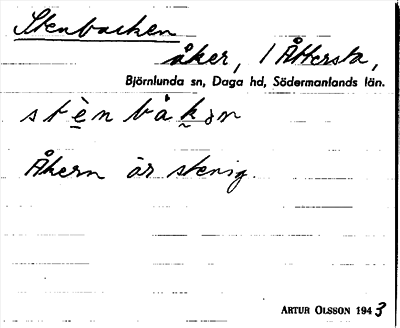 Stenbacken
åker, 1 Åttersta,
Björnlunda sn, Daga hd, Södermanlands län.
stè̱n båk̰ən
Åkern är stenig.
ARTUR OLSSON 1943